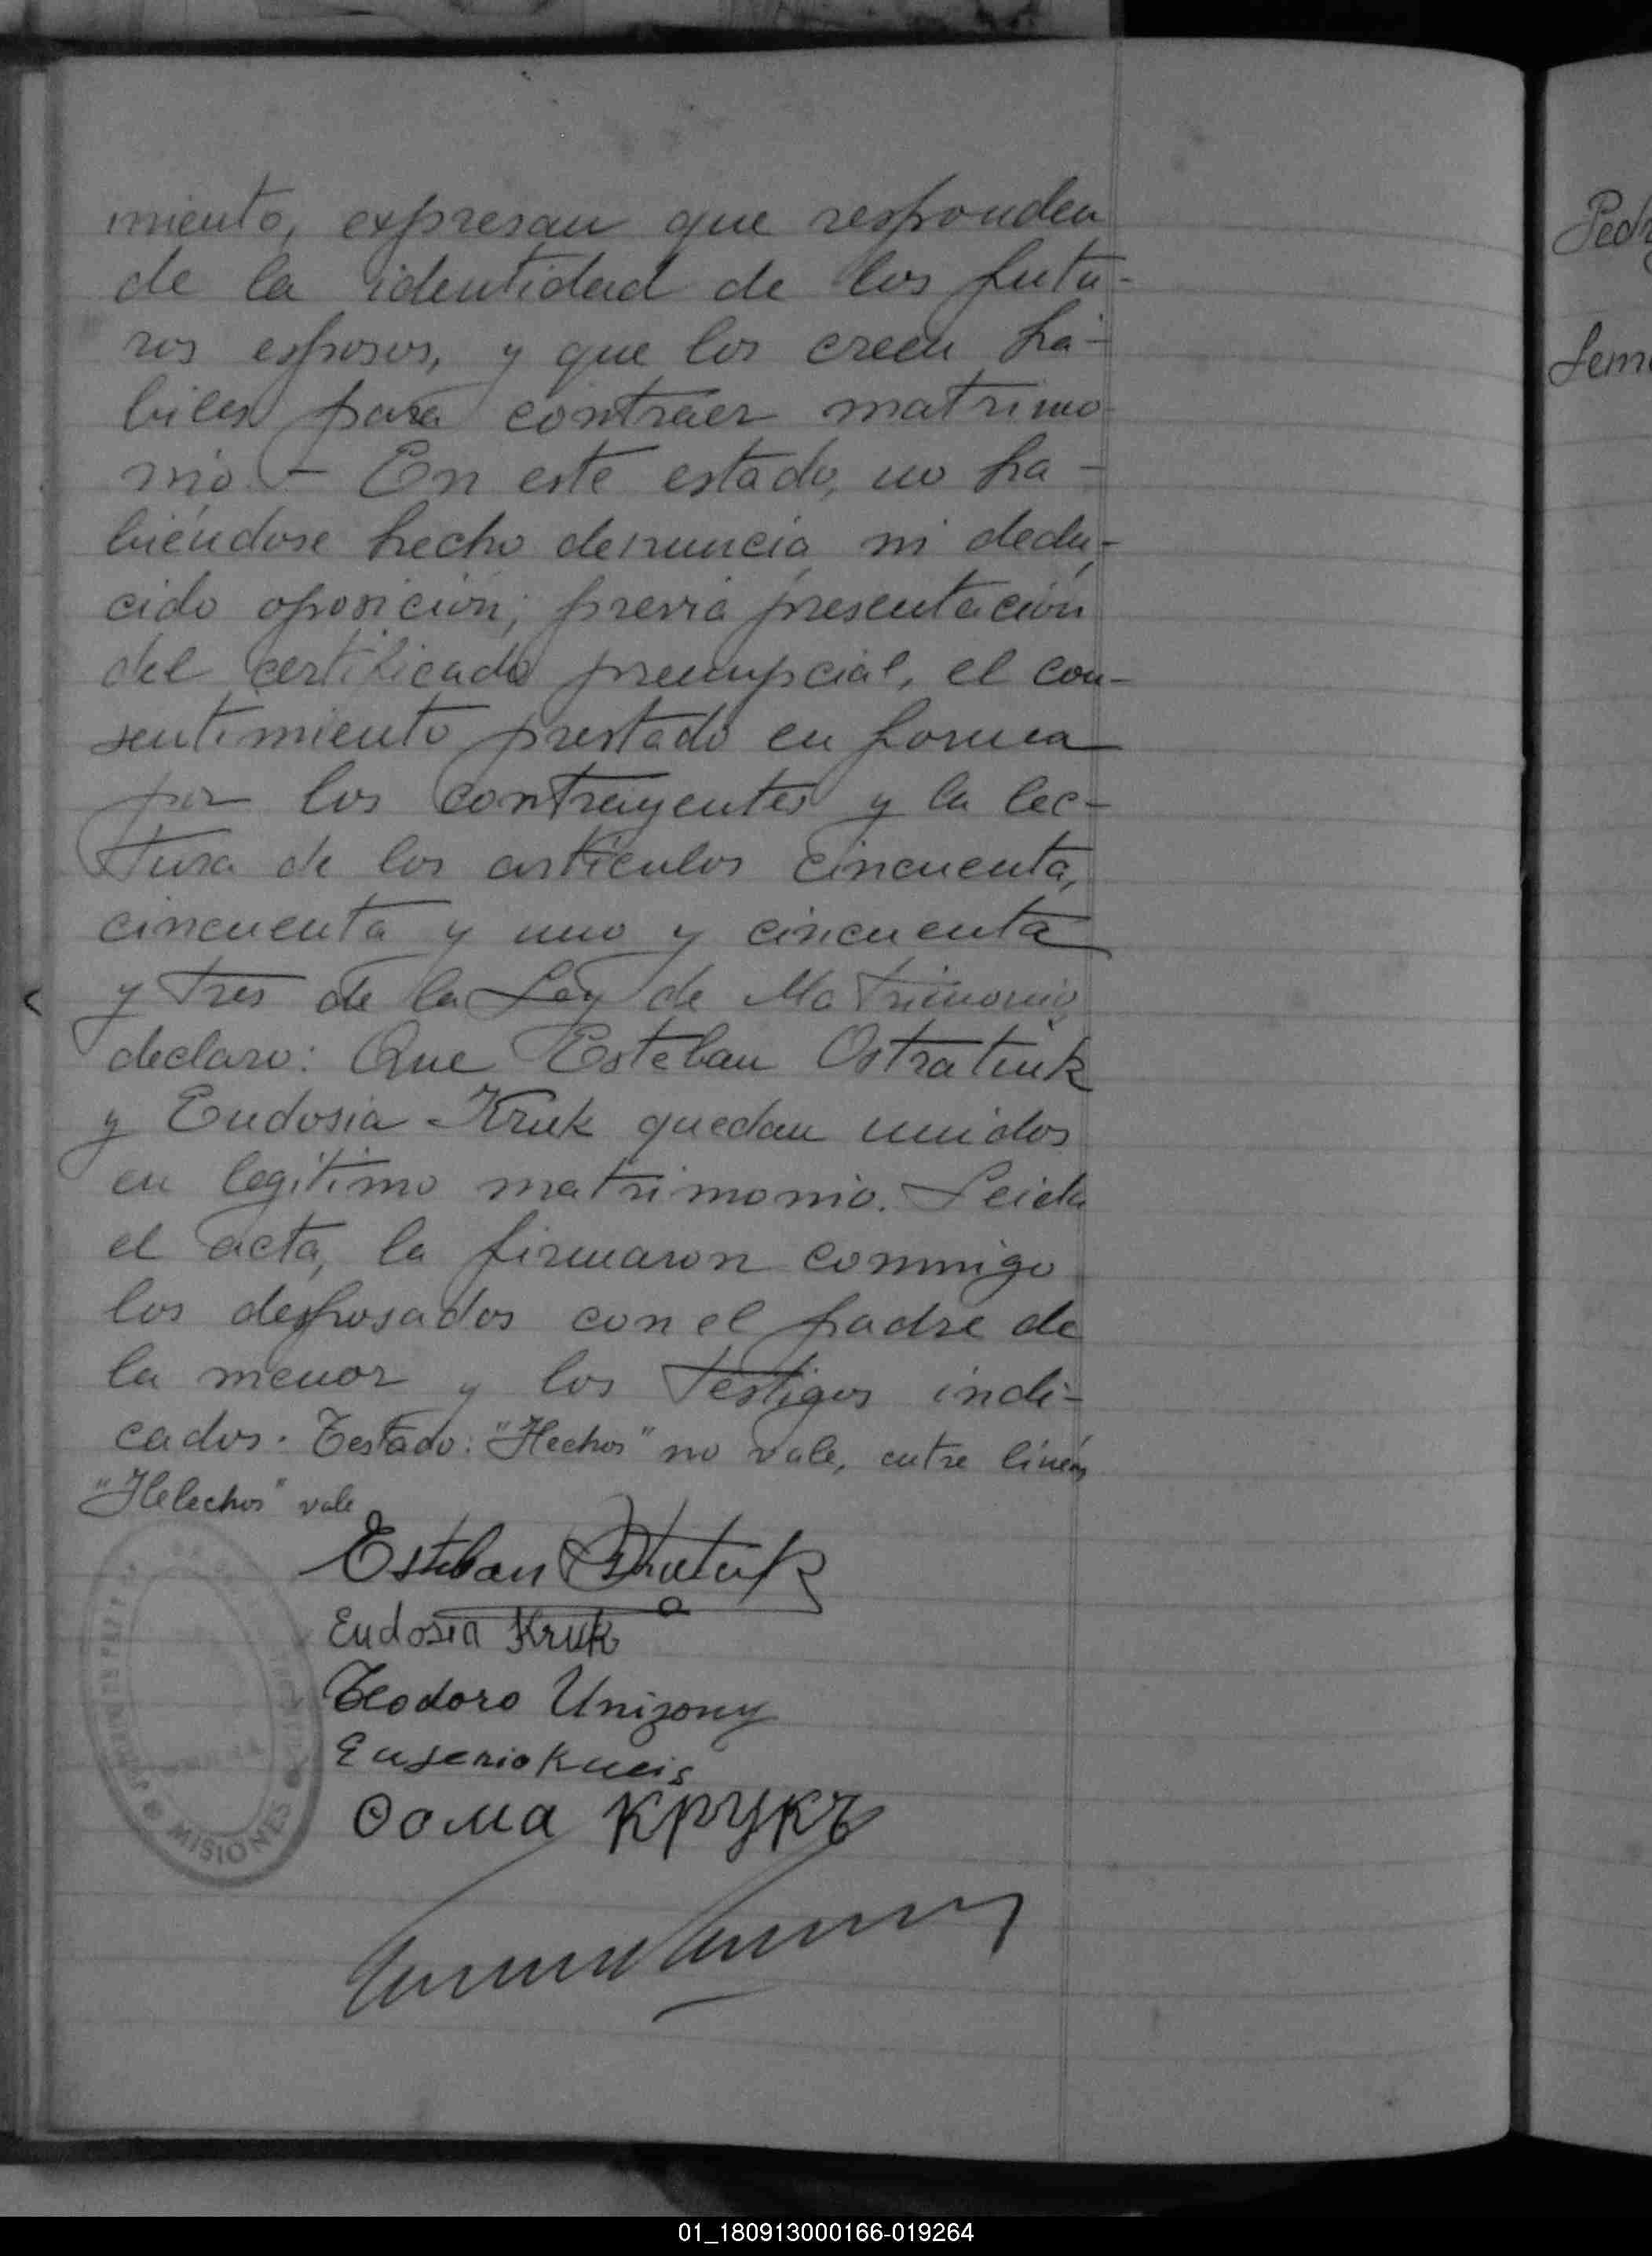 miento, expresan que responden
de la identidad de los futu-
ros esposos, y que los creen há-
biles para contraer matrimo
nio. - En este estado, no ha-
biéndose hecho denuncia ni dedu-
cido oposición; previa presentación
del certificado prenupcial, el con-
sentimiento prestado en forma
por los contrayentes y la lec-
tura de los artículos cincuenta,
cincuenta y uno y cincuenta
y tres de la Ley de Matrimonio,
declaro: Que Esteban Ostratiuk
y Eudosia Kruk quedan unidos
en legítimo matrimonio. Leida
el acta, la firmaron conmigo
los desposados con el padre de
la menor y los testigos indi-
cados. Testado: "Hechos" no vale, entre líneas
"Helechos" vale
Esteban
Eudosia Kruk
Teodoro Unizony
Ѳома Крукъ
MISIONES
Ped
01_180913000166-019264